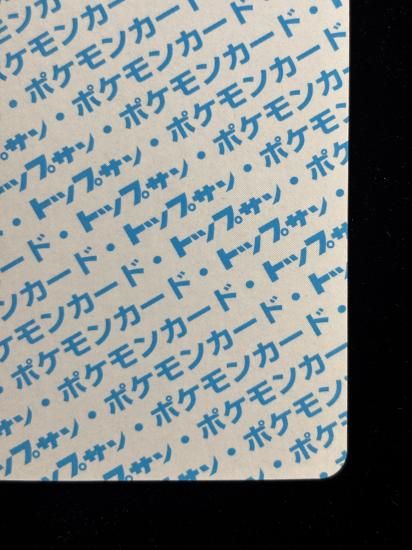 カード
ケモンカード・
・ポケモンカード・
サン・ポケモンカード・
ップサン・ポケモンカード
・トップサン・ポケモンカ
ド・トップサン・ポケ
ード・トップサン・
カード・トップサン
ンカード・トップ
モンカード・トッ
ケモンカード・
・ポケモンカード・
サン・ポケモンカード
ップサン・ポケモン
トップサン・ポケ
プサン・